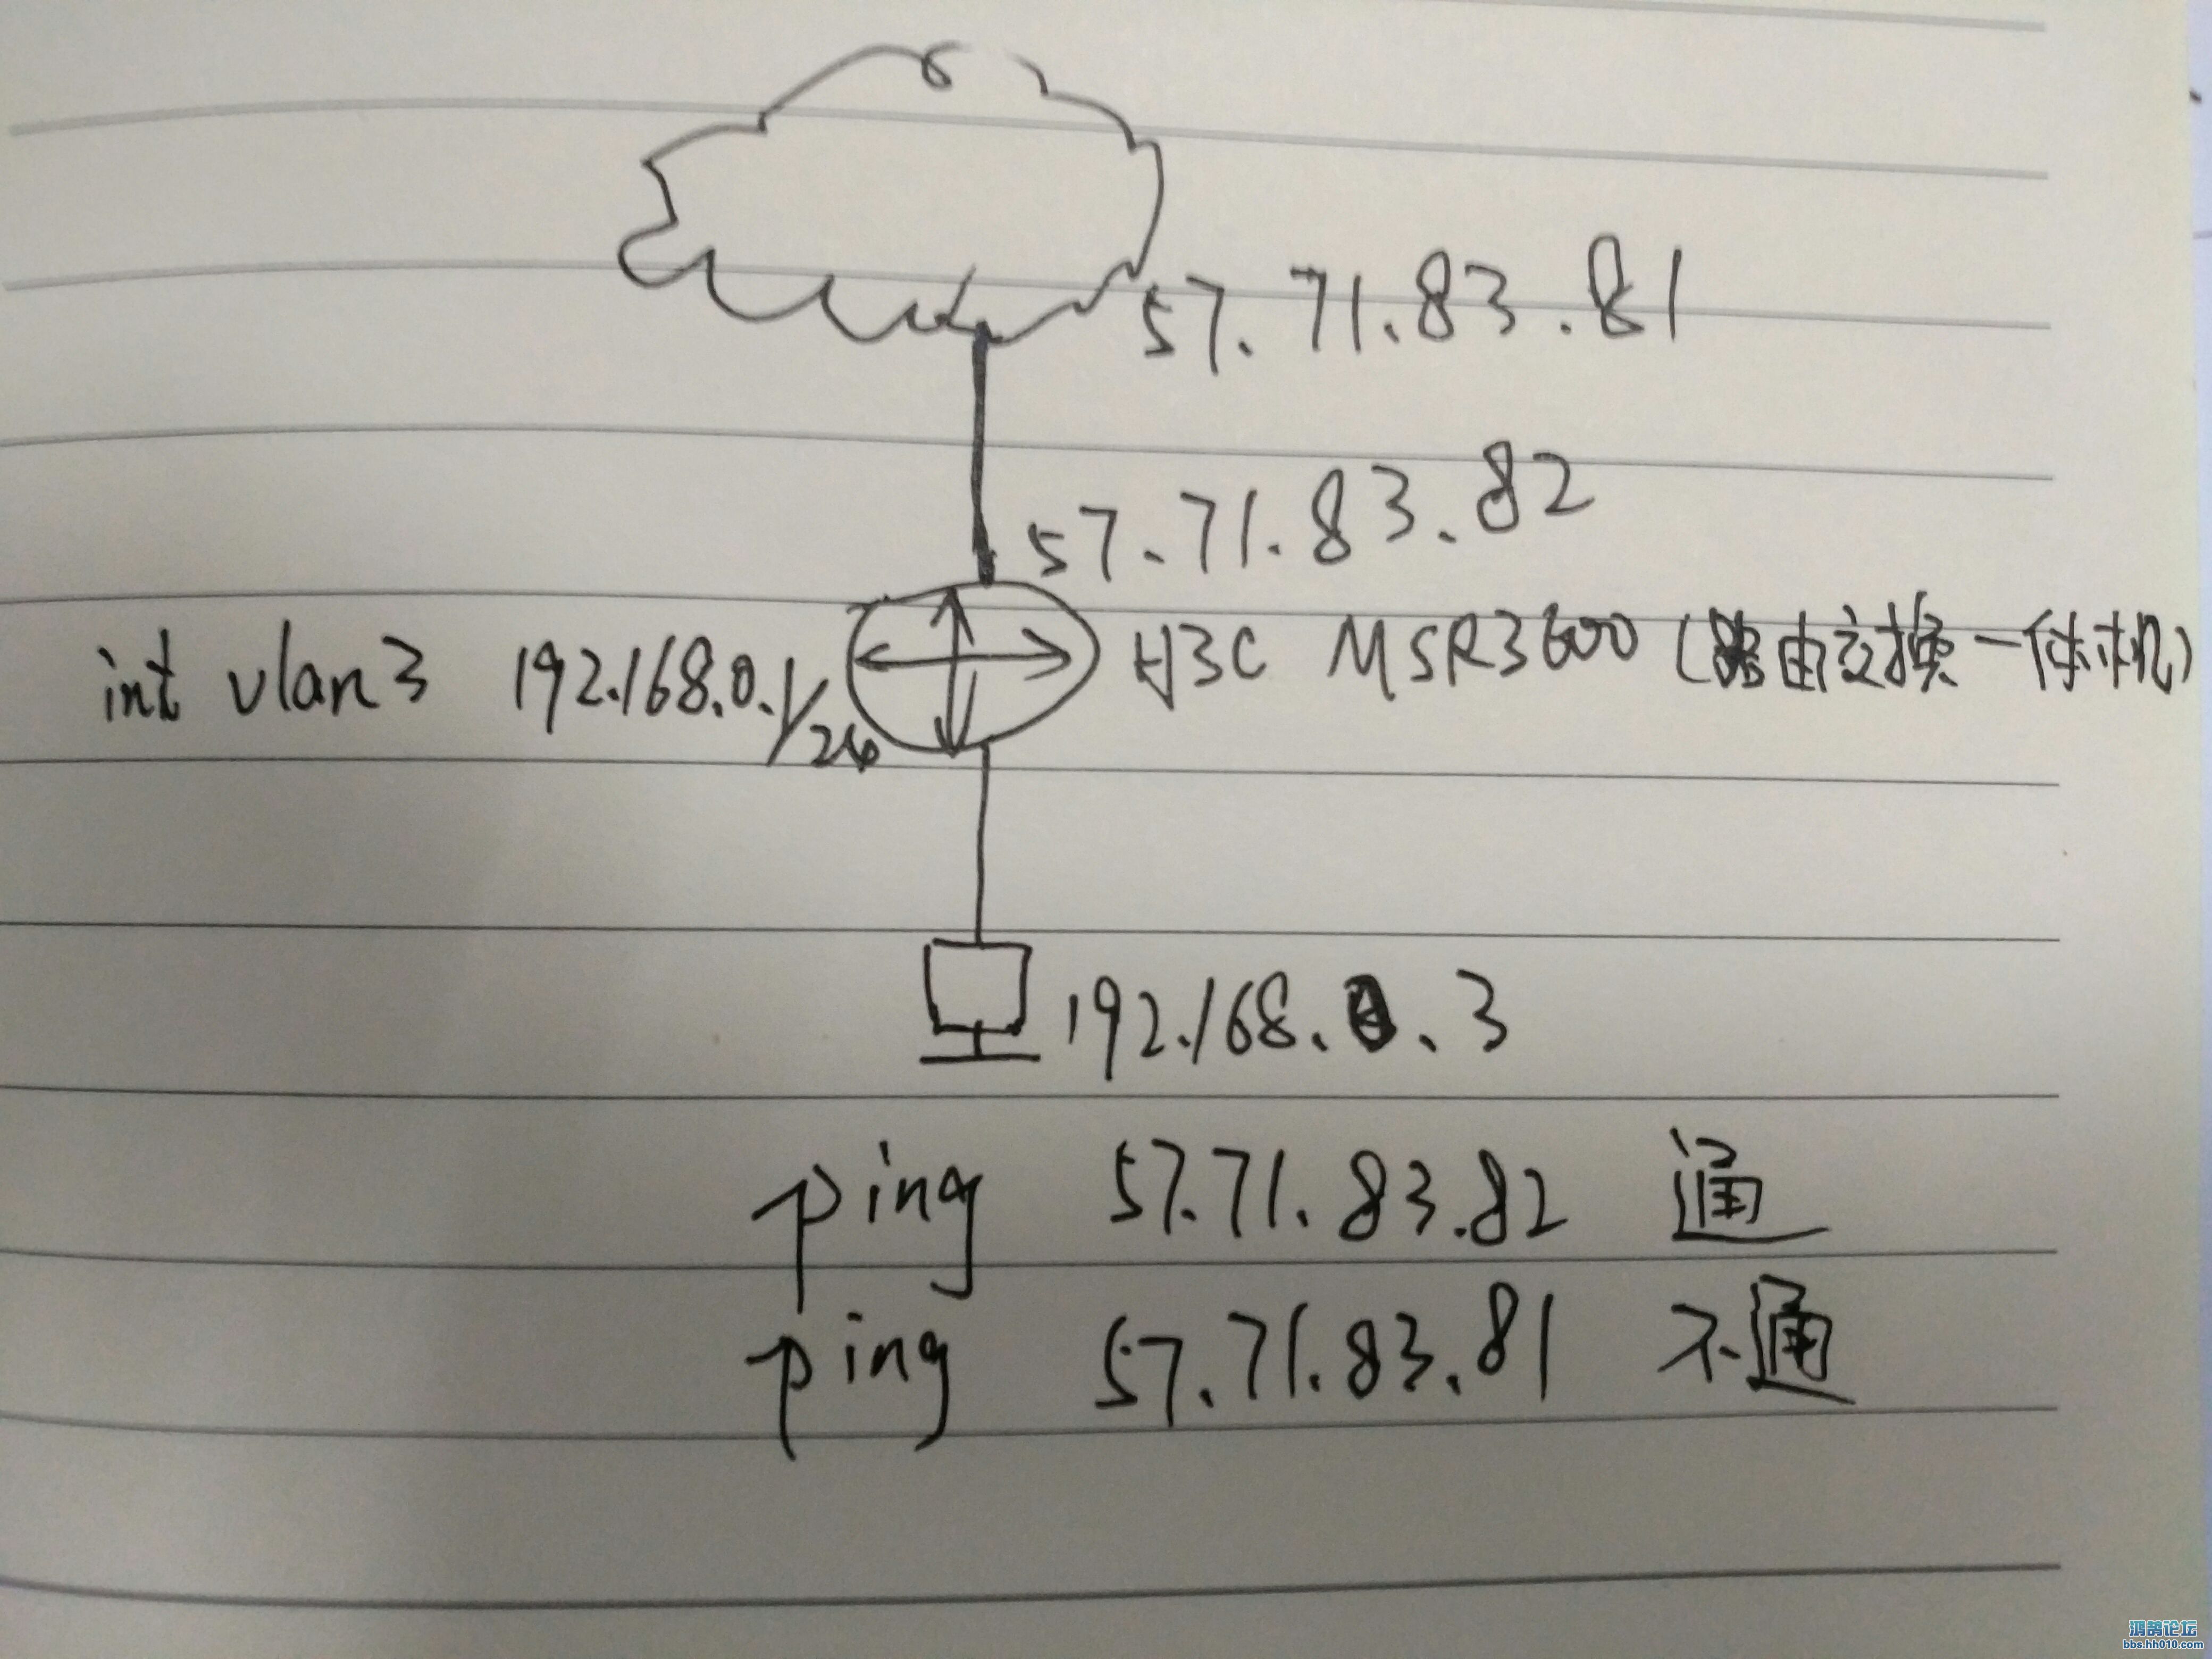 57.71.83.81
57.71.83.82
int vlan3 192.168.0.1/26
H3C MSR3600 (路由交换一体机)
192.168.0.3
ping 57.71.83.82 通
ping 57.71.83.81 不通
鸿鹄论坛
bbs.hh010.com